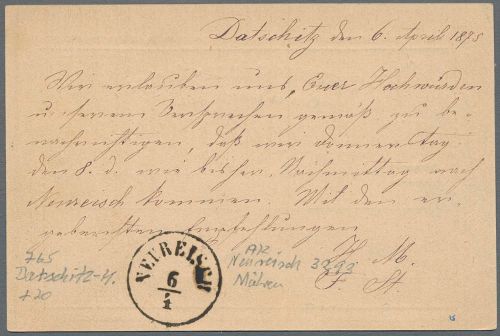 Datschitz den 6. April 1875
Wir erlauben uns, Euer Hochwürden
unserem Versprechen gemäß zu be-
nachrichtigen, daß wir Donnerstag
den 8. d. wie bisher Vormittag nach
Neureisch kommen. Mit den er-
gebensten Empfehlungen
H. M.
F. St.
NEUREISCH
6/4
765
Datschitz-H.
+20
AK
Neureisch 3293
Mähren